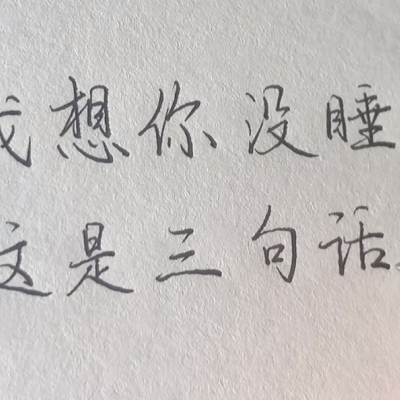 我想你没睡
这是三句话。